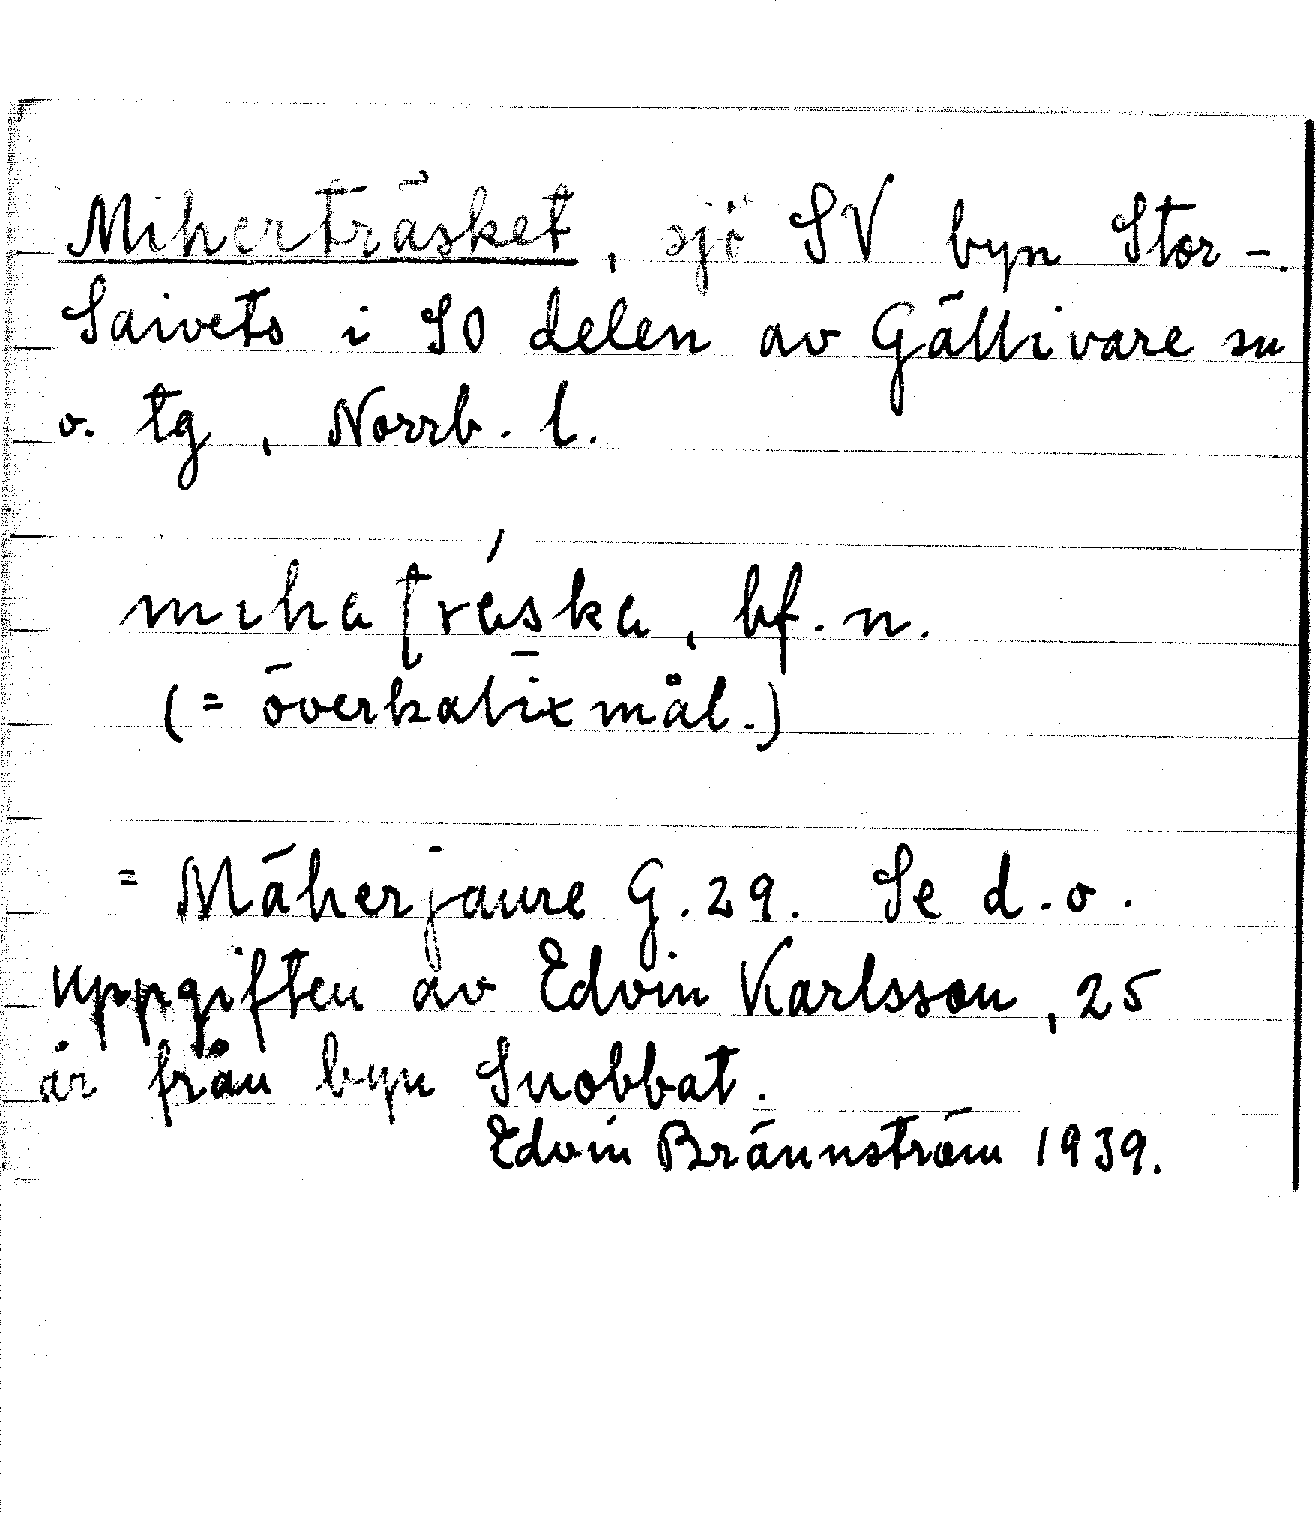 Miherträsket, sjö SV byn Stor-
Saivets i SO delen av Gällivare sn
o. tg, Norrb. l.
mıha tráska, bf. n.
(= överkalixmål.)
= Mäherjaure G. 29. Se d. o.
Uppgiften av Edvin Karlsson, 25
år från byn Snobbat.
Edvin Brännström 1939.